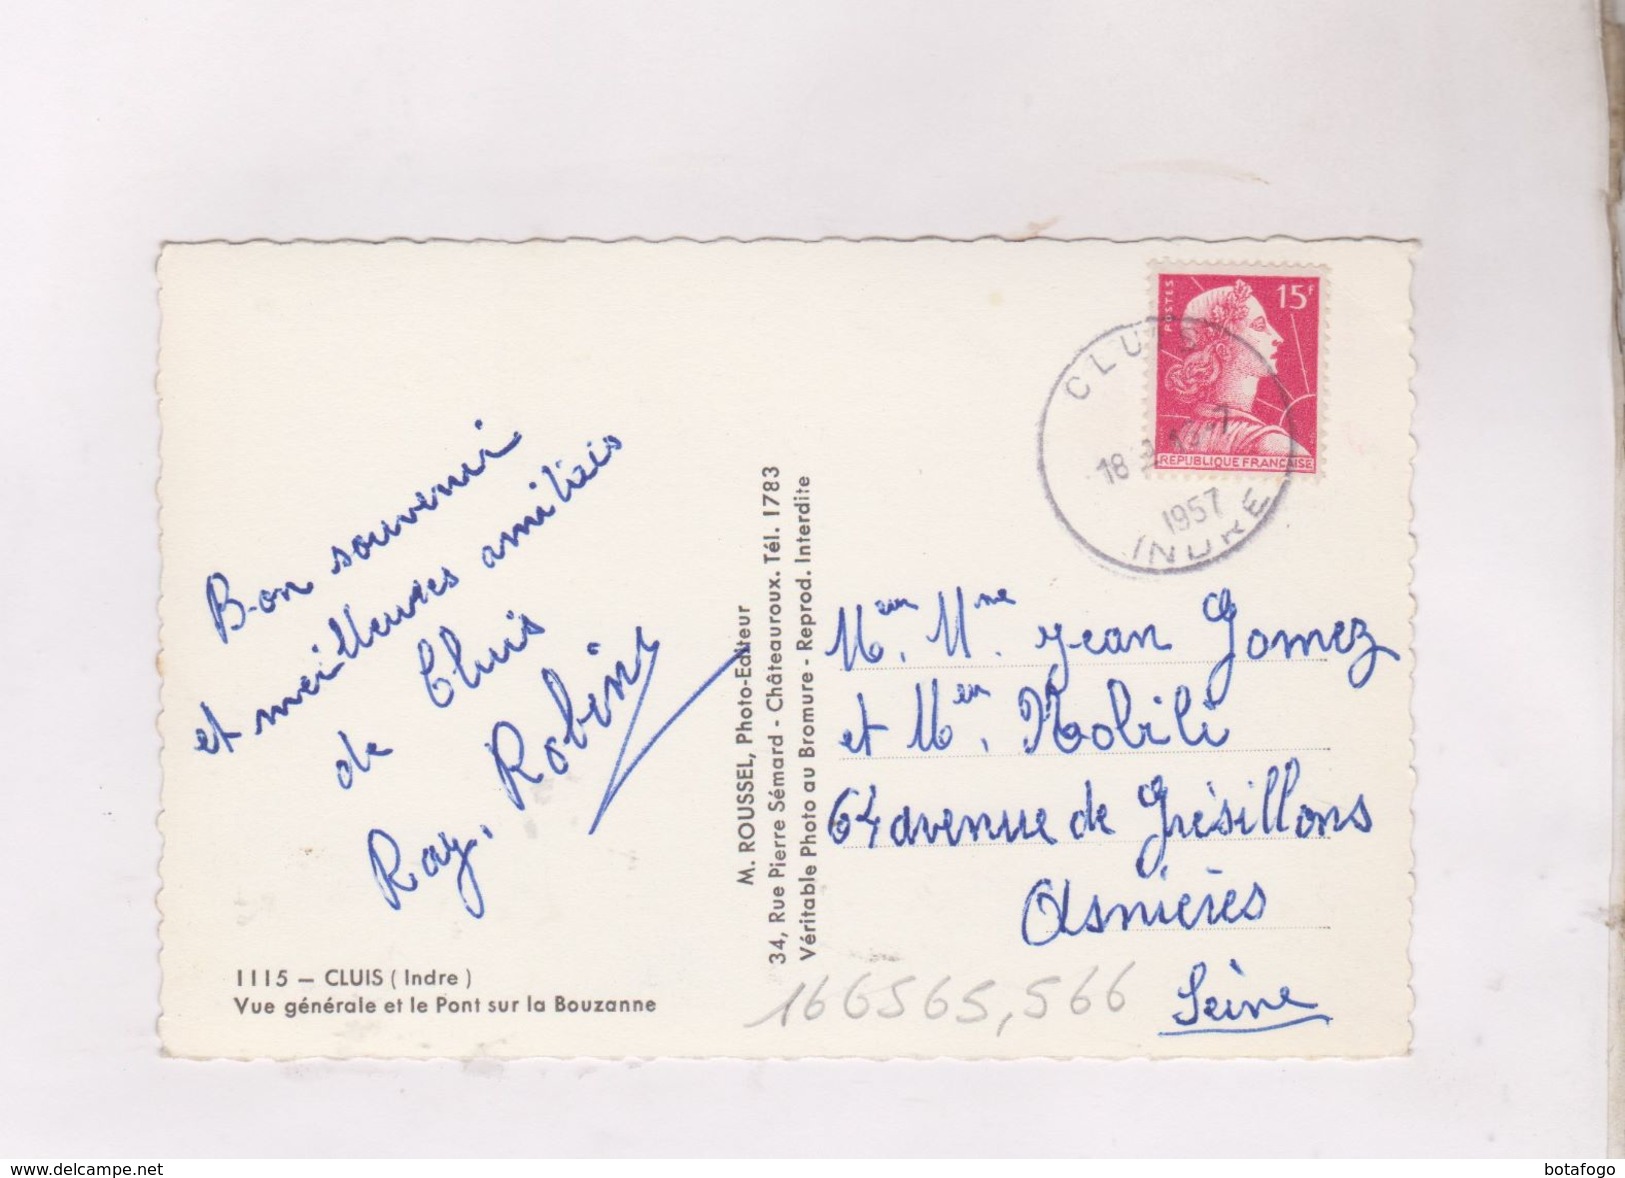 Bon souvenir
et meilleures amitiés
de Cluis
Ray. Robin
1115 – CLUIS ( Indre )
Vue générale et le Pont sur la Bouzanne
M. ROUSSEL, Photo-Editeur
34, Rue Pierre Sémard - Châteauroux. Tél. 1783
Véritable Photo au Bromure - Reprod. Interdite
POSTES
15F
REPUBLIQUE FRANCAISE
CLUIS
1957
INDRE
Meur. Mme. Jean Gomez
et Meur. Nobili
64 avenue de Grésillons
Asnières
Seine
166565,566
www.delcampe.net
botafogo